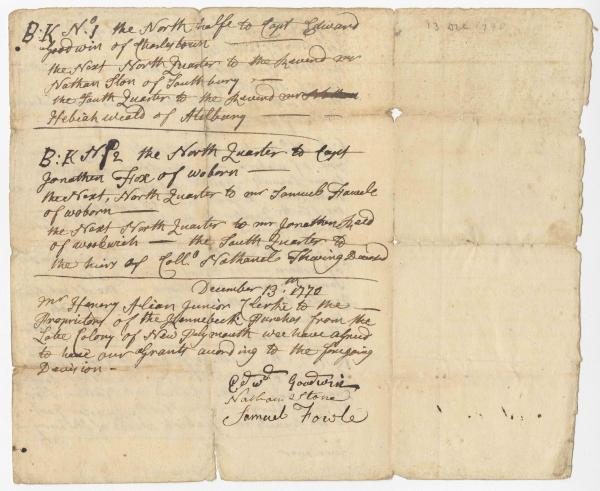 B:K No 1 the North halfe to Capt Edward
Goodwin of Charlestown
the Next North Quarter to the Revernd mr
Nathan Ston of Southbury
the South Quarter to the Revernd mr
Hebiah weald of Atelbury
B:K No 2 the North Quarter to Capt
Jonathen Fox of woborn
the Next, North Quarter to mr Samuel Fowele
of woborn
the Next North Quarter to mr Jonathen Raid
of woolwich the South Quarter to
the hiers of Coll.o Nathanel Thwing Deceased
December 13th 1770
mr Henery Alian Junior Clerke to the
Propriters of the Kennebeck Purchas from the
Late Colony of New Plymouth wee have agreed
to have our Grants acording to the foregoing
Devision
Edwd Goodwin
Nathan Stone
Samuel Fowle
13 Dec 1770